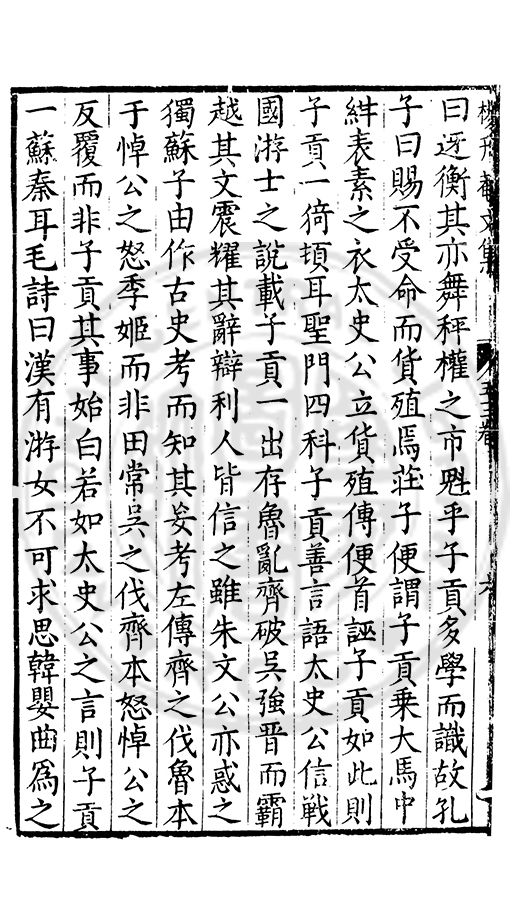 曰迓衡其亦舞秤權之市魁乎子貢多學而識故孔
子曰賜不受命而貨殖焉莊子便謂子貢乗大馬中
紺表素之衣太史公立貨殖傳便首誣子貢如此則
子貢一猗頓耳聖門四科子貢善言語太史公信戰
國游士之說載子貢一出存魯亂齊破吳強晉而霸
越其文震耀其辭辯利人皆信之雖朱文公亦惑之
獨蘇子由作古史考而知其妄考左傳齊之伐魯本
于悼公之怒季姬而非田常吳之伐齊本怒悼公之
反覆而非子貢其事始白若如太史公之言則子貢
一蘇秦耳毛詩曰漢有游女不可求思韓嬰曲爲之